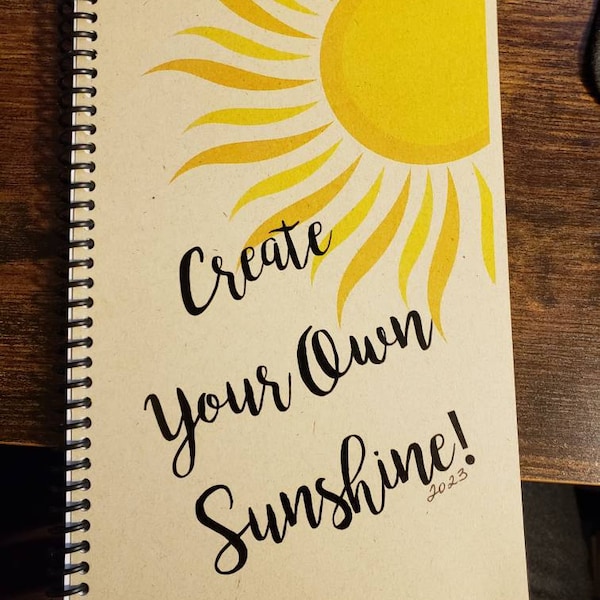 Create
Your Own
Sunshine!
2023